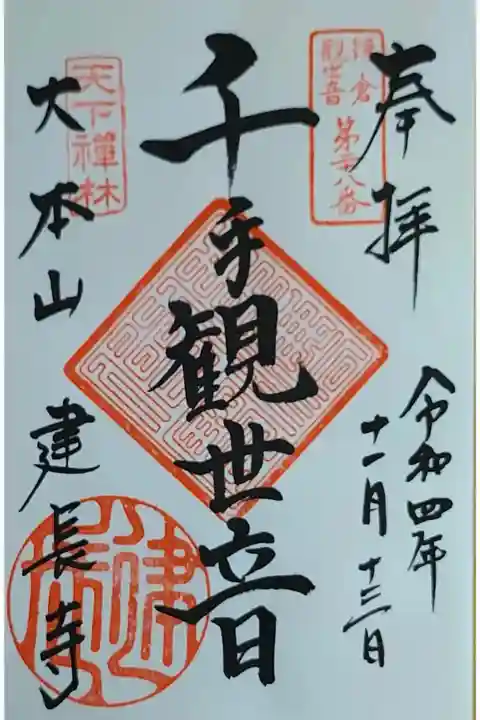 奉拝
鎌倉
観世音
第二十八番
令和四年
十一月十三日
千手観世音
天下禅林
大本山 建長寺